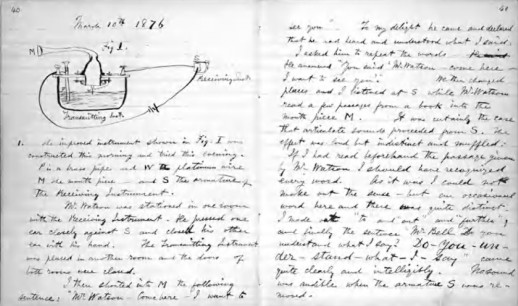 40
March 10th 1876
Fig 1.
M
Receiving Inst.
Transmitting Inst.
1. The improved instrument shown in Fig. I was
constructed this morning and tried this evening.
P is a brass pipe and W the platinum wire
M the mouth piece and S the armature of
the Receiving Instrument.
Mr. Watson was stationed in one room
with the Receiving Instrument. He pressed one
ear closely against S and closed his other
ear with his hand. The Transmitting Instrument
was placed in another room and the doors of
both rooms were closed.
I then shouted into M the following
sentence: "Mr. Watson - Come here - I want to
41
see you". To my delight he came and declared
that he had heard and understood what I said.
I asked him to repeat the words.
He answered "You said 'Mr. Watson - come here -
I want to see you'." We then changed
places and I listened at S while Mr. Watson
read a few passages from a book into the
mouth piece M. It was certainly the case
that articulate sounds proceeded from S. The
effect was loud but indistinct and muffled.
If I had read beforehand the passage given
by Mr. Watson I should have recognized
every word. As it was I could not
make out the sense - but an occasional
word here and there was quite distinct.
I made out "to" and "out" and "further";
and finally the sentence "Mr. Bell do you
understand what I say? Do-you-un-
der-stand-what-I-say" came
quite clearly and intelligibly. No sound
was audible when the armature S was re-
moved.